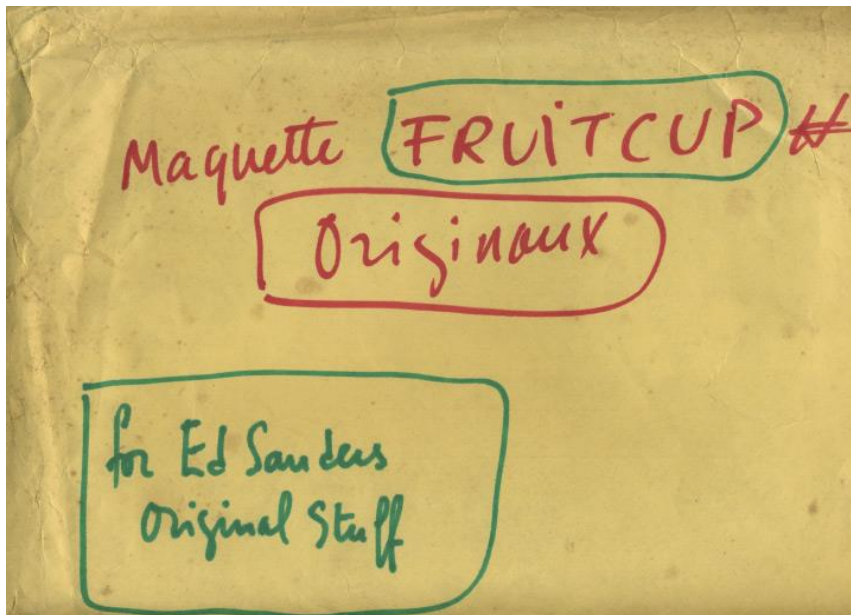 Maquette FRUiTCUP #
Originaux
for Ed Sanders
Original Stuff